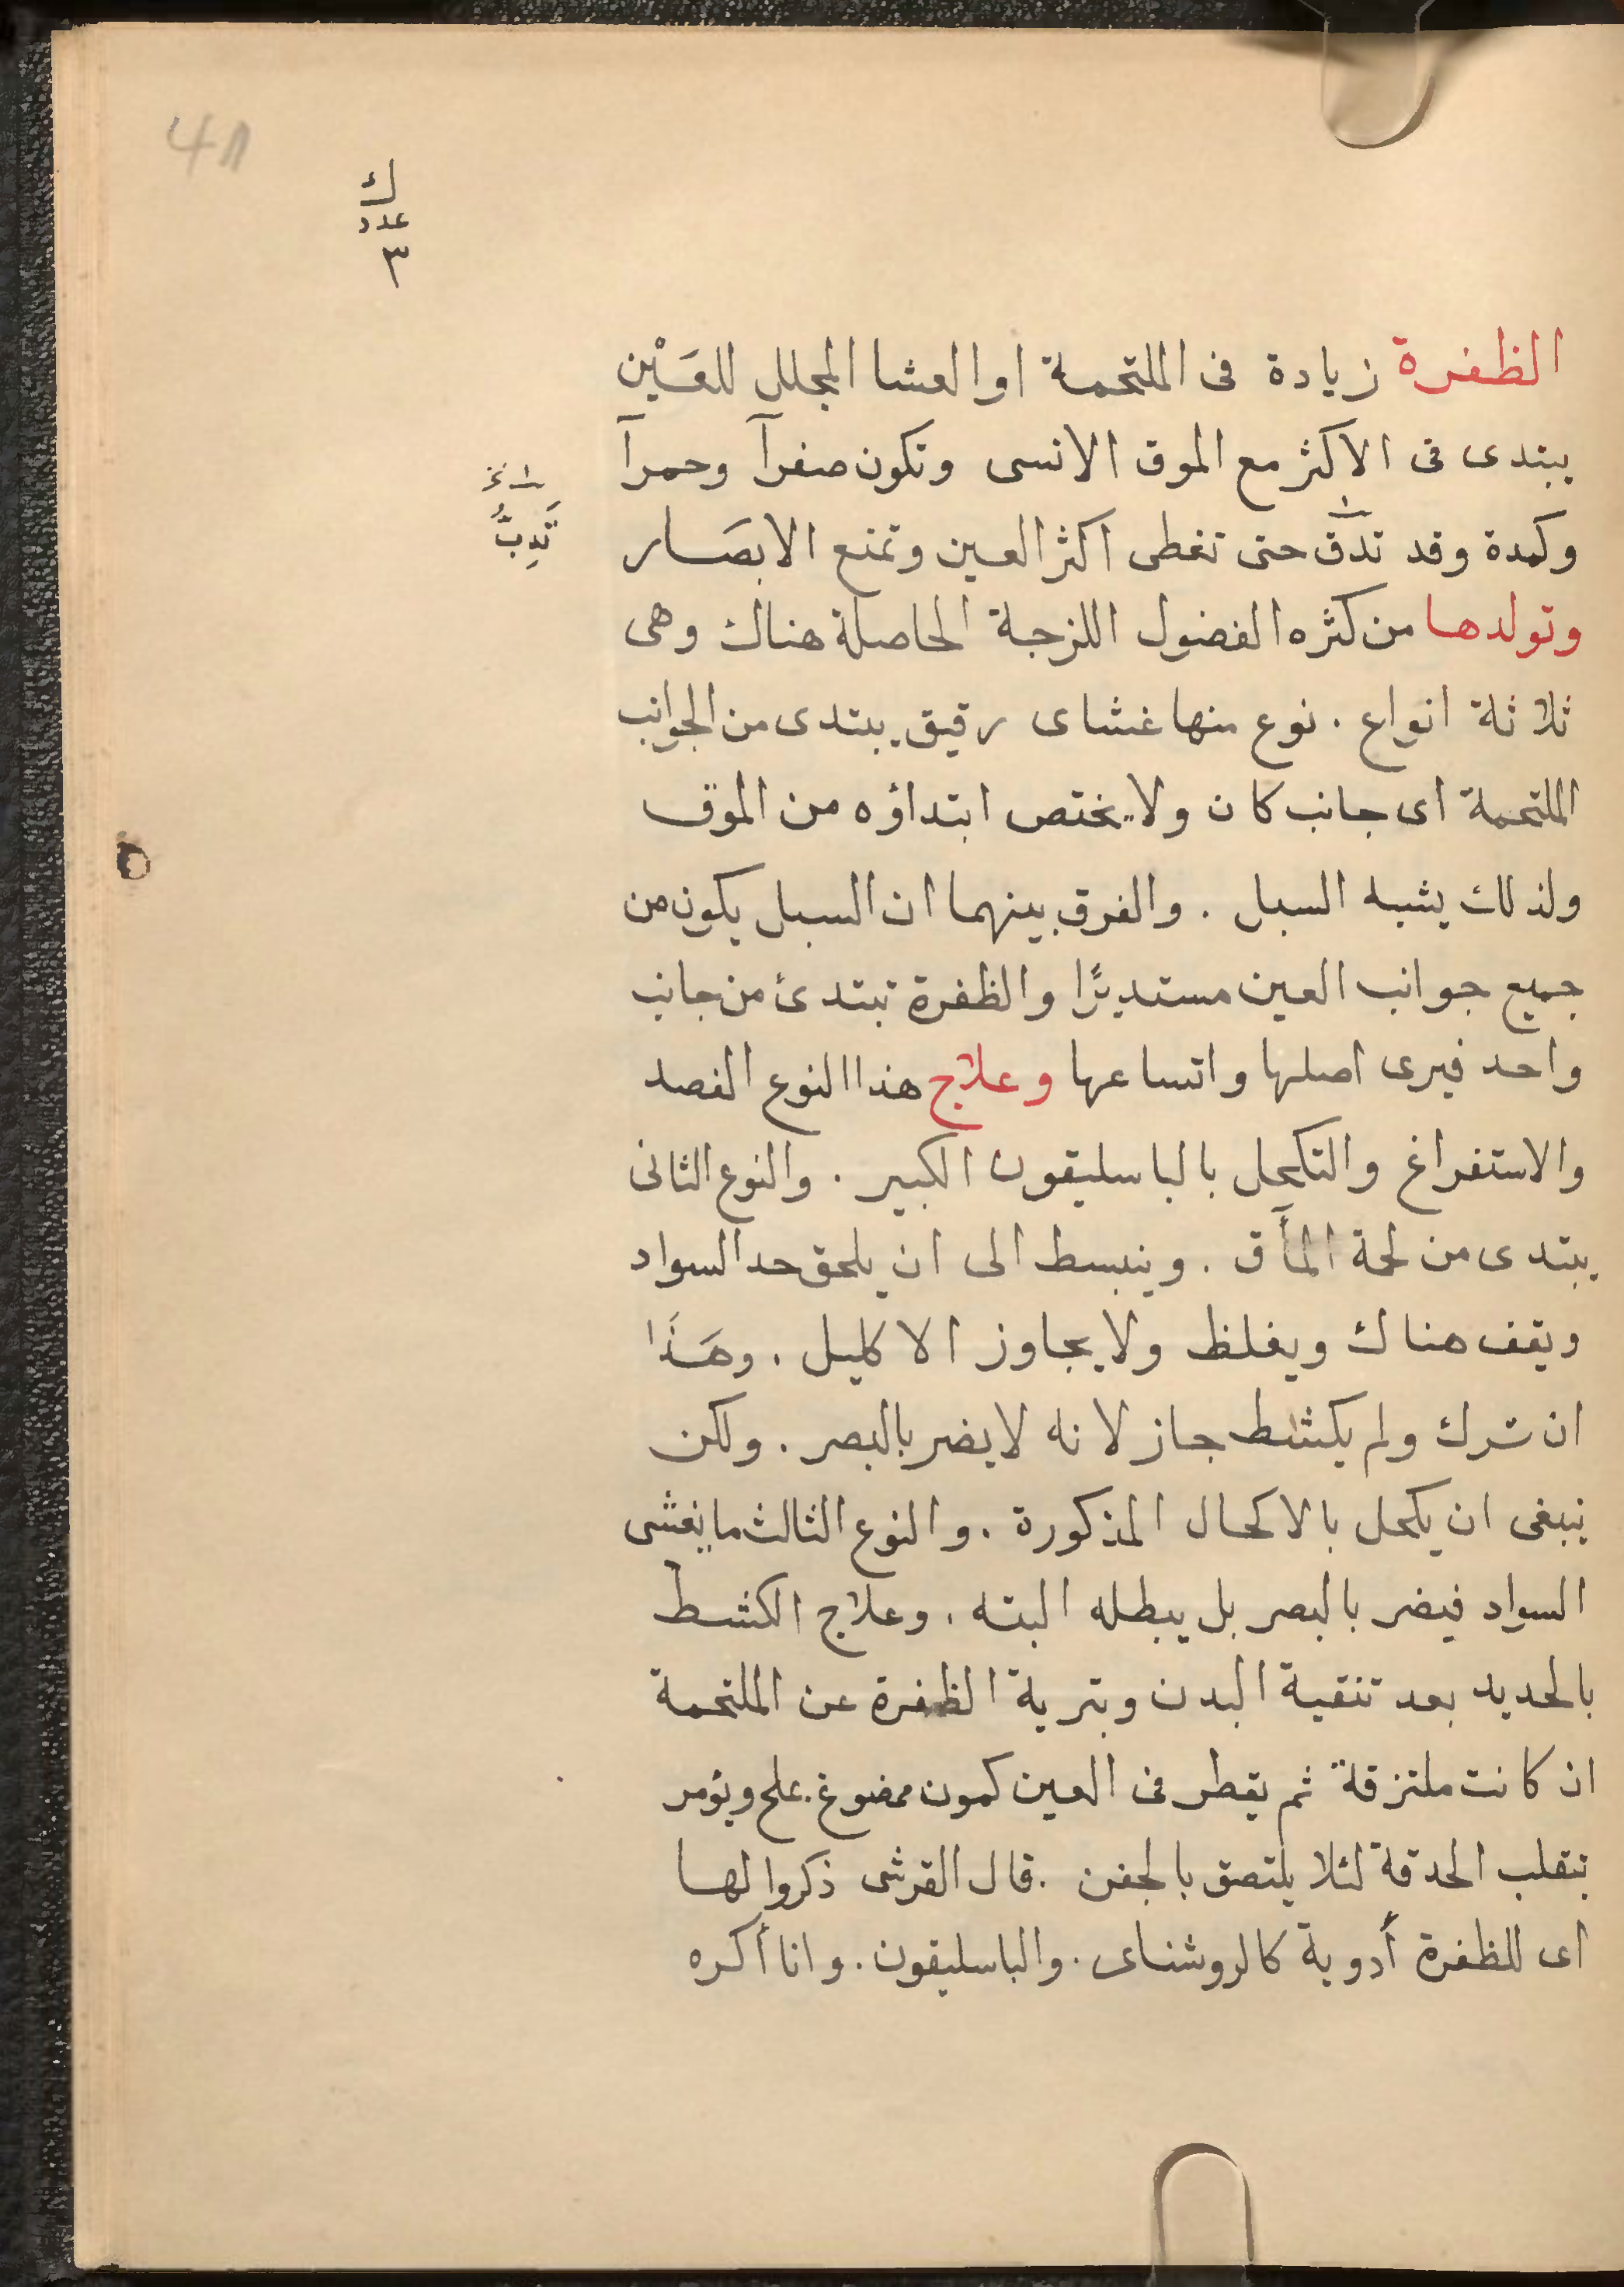 41
ك
عدد
٣
الظفرة زيادة فى الملتحمة اوالعشا المجلل للعَيْن
يبتدى فى الاكثر مع الموق الانسى وتكون صفرآ وحمرآ
وكمدة وقد تدقّ حتى تغطى اكثر العين وتمنع الابصَار
تَدِبُّ
وتولدها من كثره الفضول اللزجة الحاصلة هناك وهى
ثلاثة انواع . نوع منها غشاى رقيق يبتدى من الجوانب
الملتحمة اى جانب كان ولا يختص ابتداؤه من الموق
ولذلك يشبه السبل . والفرق بينهما ان السبل يكون من
جميع جوانب العين مستديرًا والظفرة تبتدئ من جانب
واحد فيرى اصلها واتساعها وعلاج هذا النوع الفصد
والاستفراغ والتكحل بالباسليقون الكبير . والنوع الثانى
يبتدى من لحمة المآق . وينبسط الى ان يلحق حد السواد
ويقف هناك ويغلظ ولا يجاوز الاكليل . وهَذَا
ان ترك ولم يكشط جاز لانه لا يضر بالبصر . ولكن
ينبغى ان يكحل بالاكحال المذكورة . والنوع الثالث ما يغشى
السواد فيضر بالبصر بل يبطله البته . وعلاج الكشط
بالحديد بعد تنقية البدن وبترية الظفرة عن الملتحمة
ان كانت ملتزقة ثم يقطر فى العين كمون ممضوغ بملح ويؤمر
بتقلب الحدقة لئلا يلتصق بالجفن . قال القرشى ذكروا لها
اى للظفرة أدوية كالروشناى . والباسليقون . وانا أكره